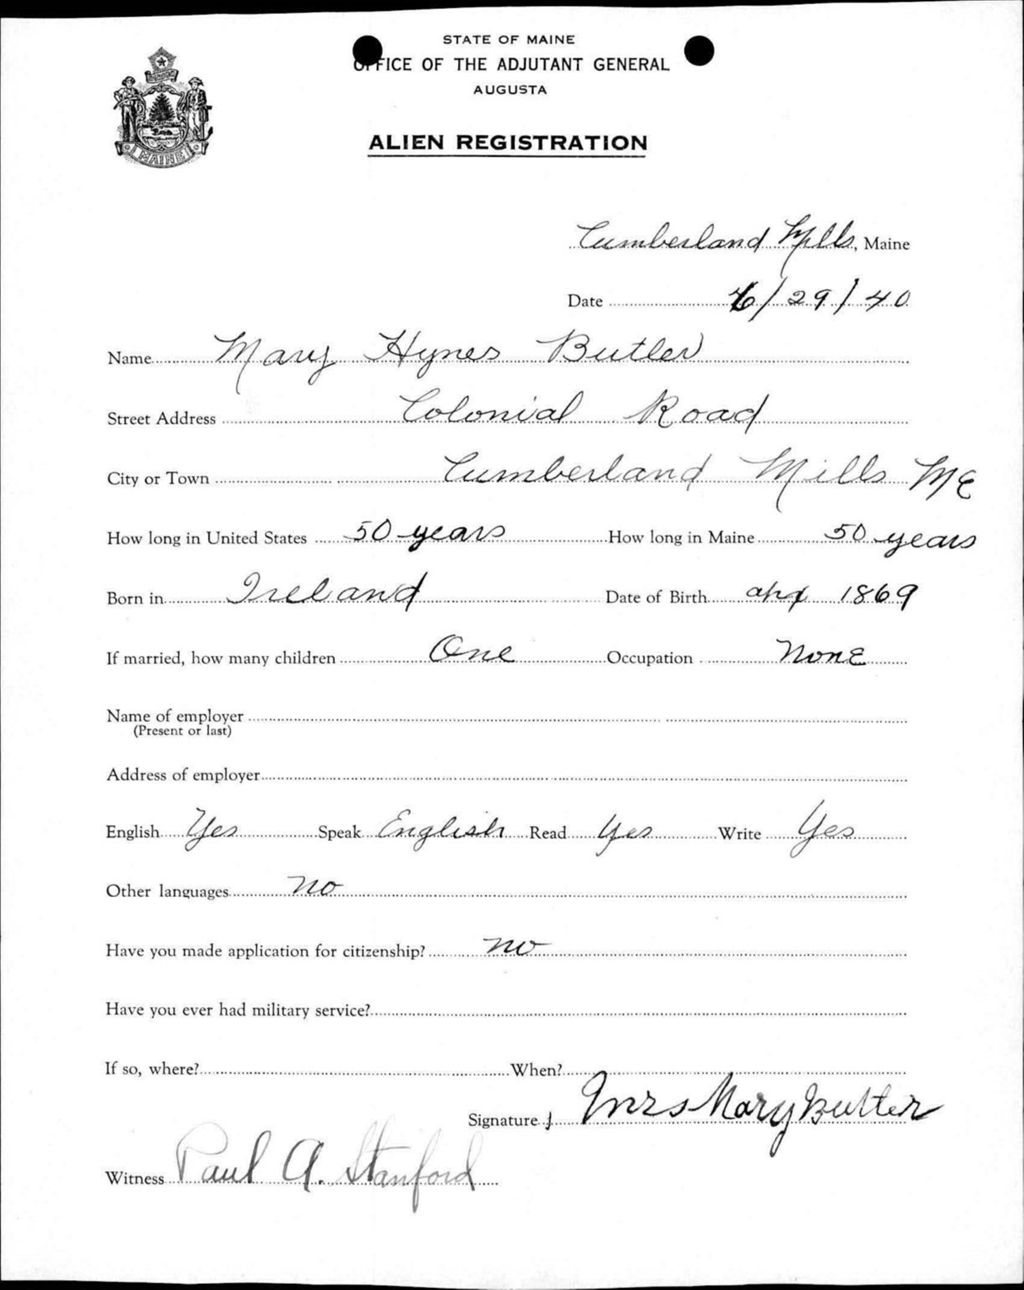 STATE OF MAINE
OFFICE OF THE ADJUTANT GENERAL
AUGUSTA
ALIEN REGISTRATION
MAINE
Cumberland Mills, Maine
Date 6/29/40
Name Mary Hynes Butler
Street Address Colonial Road
City or Town Cumberland Mills ME
How long in United States 50 years How long in Maine 50 years
Born in Ireland Date of Birth 1869
If married, how many children One Occupation None
Name of employer
(Present or last)
Address of employer
English Yes Speak English Read Yes Write Yes
Other languages No
Have you made application for citizenship? no
Have you ever had military service?
If so, where? When?
Signature Mrs Mary Butler
Witness Paul A. Stanford